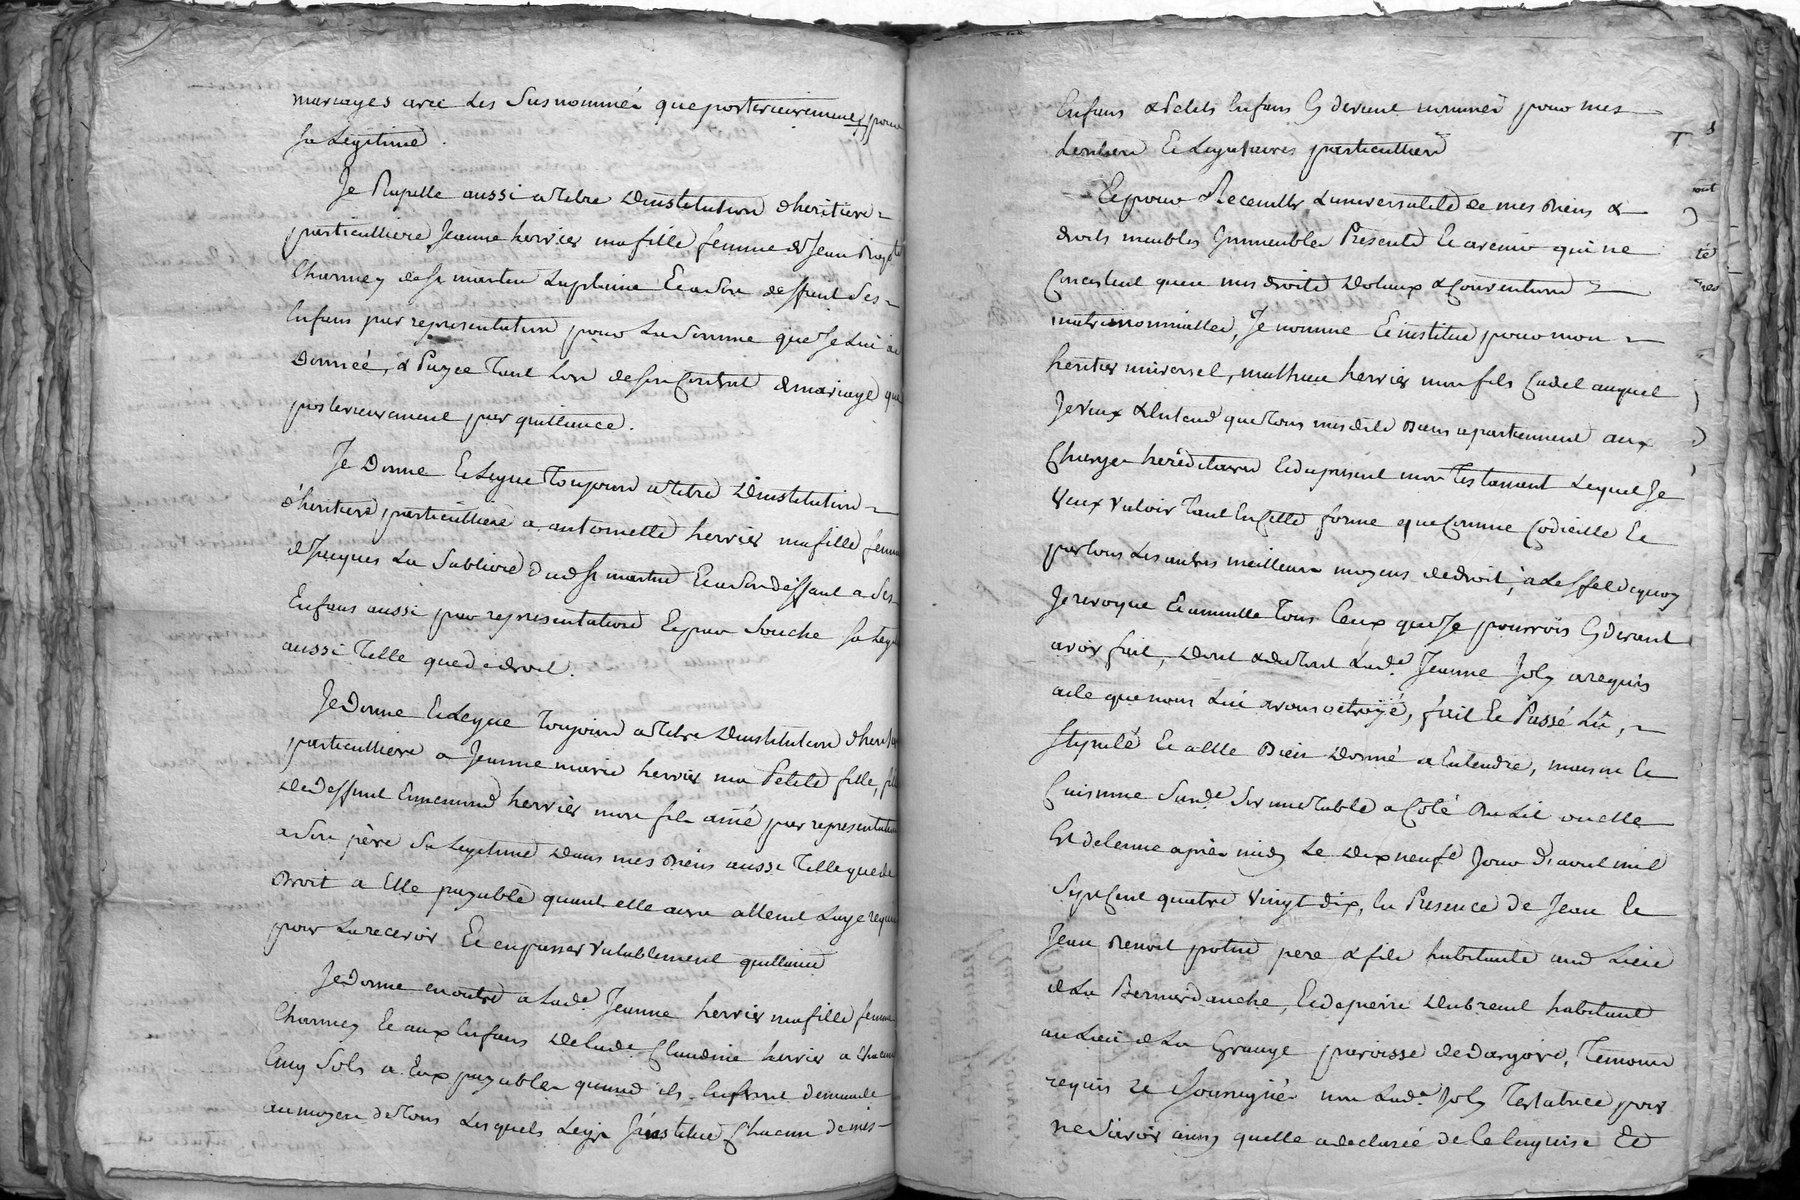 mariages avec les susnommés que posterieurement, pour
sa Legitime.
Je Rapelle aussi a titre d'institution d'heritiere
particulliere Jeanne herrier ma fille femme de Jean
Charmey de St martin Laplaine Et a son deffaut ses
Enfans par representation pour La somme que Je Lui ai
Donnée, & Payée Tant Lors de son Contrat de mariage que
posterieurement par quittance.
Je Donne Et Legue Toujours a titre D'institution
d'heritiere particulliere a antoinette herrier ma fille femme
de Jacques La Sabliere dud St martin Et a son deffaut a ses
Enfans aussi par representation Et par souche sa
aussi Telle que de droit.
Je Donne Et Legue Toujours a titre D'institution
particulliere a Jeanne marie herrier ma Petite fille,
de deffunt Ennemond herrier mon fils ainé par representation
a son père sa Legitime Dans mes Biens aussi Telle que de
Droit a Elle payable quand elle aura atteint L'age requis
pour La recevoir Et en passer valablement quittance
Je Donne en outre a Lade Jeanne herrier ma fille femme
Charmey Et aux Enfans de Lade Claudine herrier a Chacun
Cinq Sols a Eux payables quand ils En feront demande
au moyen de tous Lesquels Legs J'institue Chacun de mes
Enfans & Petits Enfans Cy devant nommés pour mes
heritiers Et Legataires particulliers
Et pour Recueillir L'universalité de mes Biens &
droits meubles & immeubles Presents Et avenir qui ne
Concistent qu'en mes droits Dotaux & Conventions
matrimonnialles, Je nomme Et institue pour mon
heritier universel, mathieu herrier mon fils Cadet auquel
Je veux & Entend que tous mesdits Biens apartiennent aux
Charges hereditaires Et du present mon Testament Lequel Je
Veux valoir Tant En cette forme que Comme Codicille Et
par tous Les autres meilleurs moyens de droit, a L'effet de quoy
Je revoque Et annulle Tous Ceux que Je pourrois Cy devant
avoir fait, Dont & du tout Lade Jeanne Joly a requis
acte que nous Lui avons octroyé, fait Et Passé Lû,
stipulé Et a Elle Bien Donné a Entendre, maison Et
Cuisinne Sur une Table a Côté Du Lit ou elle
Est detenue après midy Le Dix neufe Jour d'avril mil
Sept Cent quatre vingt dix, En Presence de Jean Et
Jean Benoit pere & fils habitants au Lieu
de La Bernardanche, Et de pierre Dubreuil habitant
au Lieu de La Grange paroisse de Dargoire, Temoins
requis Et Soussignés non Lade Joly Testatrice pour
ne Savoir ainsy quelle a declarée de Ce Enquise Et